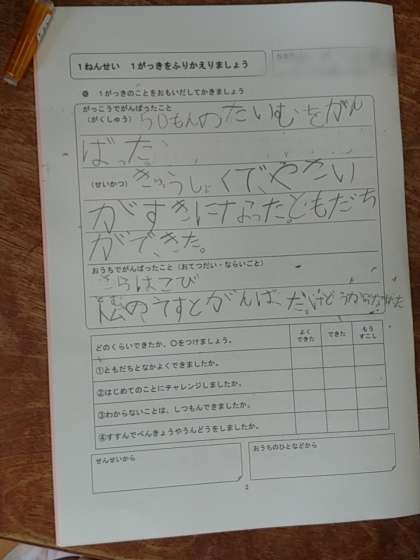 1ねんせい 1がっきをふりかえりましょう
1がっきのことをおもいだしてかきましょう
がっこうでがんばったこと
(がくしゅう) 50もんのたいむをがん
ばった。
(せいかつ) きゅうしょくで、やさい
がすきになった。ともだち
ができた。
おうちでがんばったこと (おてつだい・ならいごと)
さらはこび
のてすとがんば
どのくらいできたか、○をつけましょう。
よくできた
できた
もうすこし
①ともだちとなかよくできましたか。
②はじめてのことにチャレンジしましたか。
③わからないことは、しつもんできましたか。
④すすんでべんきょうやうんどうをしましたか。
せんせいから
おうちのひとなどから
2